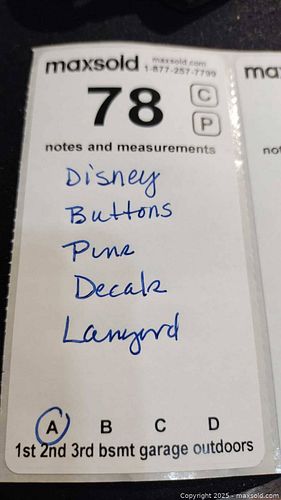 maxsold maxsold.com
1-877-257-7799
78 C
P
notes and measurements
Disney
Buttons
Pins
Decals
Lanyard
A B C D
1st 2nd 3rd bsmt garage outdoors
ma
not
Copyright 2025 - maxsold.com